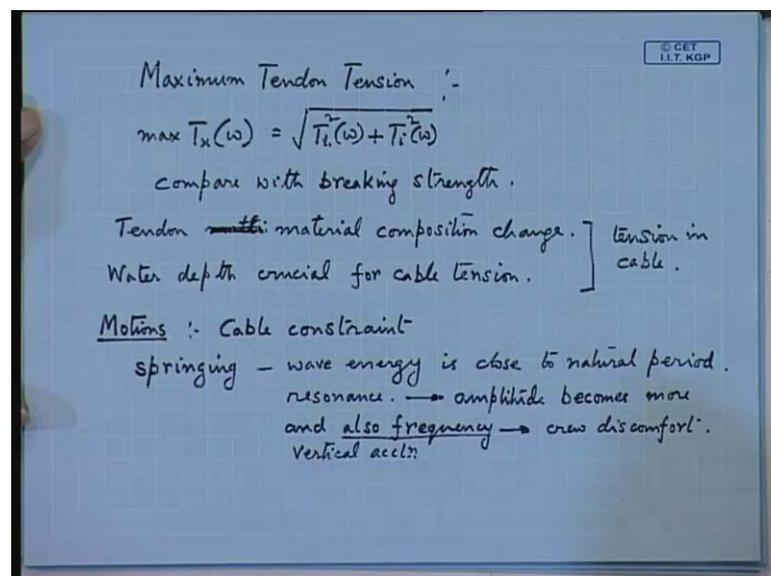 © CET
I.I.T. KGP
Maximum Tendon Tension :-
max Tx(ω) = √Tr²(ω) + Ti²(ω)
compare with breaking strength.
Tendon material composition change.
Water depth crucial for cable tension.
tension in
cable.
Motions :- Cable constraint
springing – wave energy is close to natural period.
resonance. → amplitude becomes more
and also frequency → crew discomfort.
vertical accln